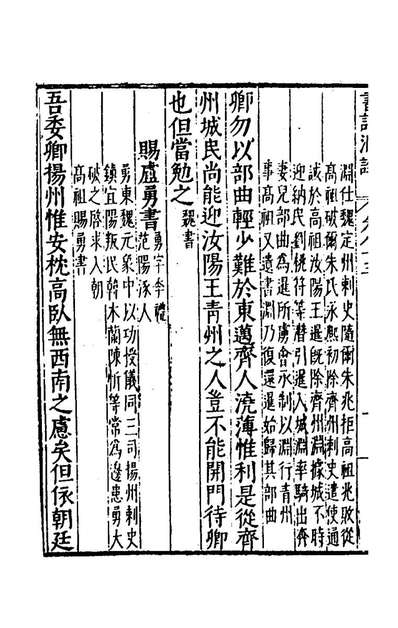 淵仕魏定州刺史隨爾朱兆拒高祖兆敗從
高祖破爾朱氏永熙初除齊州刺史遣使通
誠於高祖汝陽王暹旣除齊州淵據城不時
迎納民劉桃符等潛引暹入城淵率騎出奔
妻兒部曲為暹所虜會承制以淵行青州
事高祖又遺書淵乃復還暹始歸其部曲
卿勿以部曲輕少難於東邁齊人澆薄惟利是從齊
州城民尚能迎汝陽王青州之人豈不能開門待卿
也但當勉之 魏書
賜盧勇書 勇字季禮
范陽涿人
勇東魏元象中以功授儀同三司揚州刺史
鎮宜陽叛民韓木蘭陳忻等常為邊患勇大
破之啓求入朝
高祖賜勇書
吾委卿揚州惟安枕高臥無西南之慮矣但依朝廷